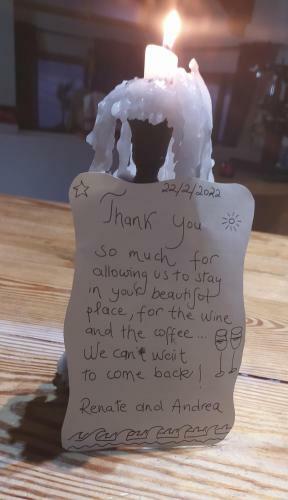 22/2/2022
Thank you
so much for
allowing us to stay
in your beautiful
place, for the wine
and the coffee...
We can't wait
to come back!
Renate and Andrea